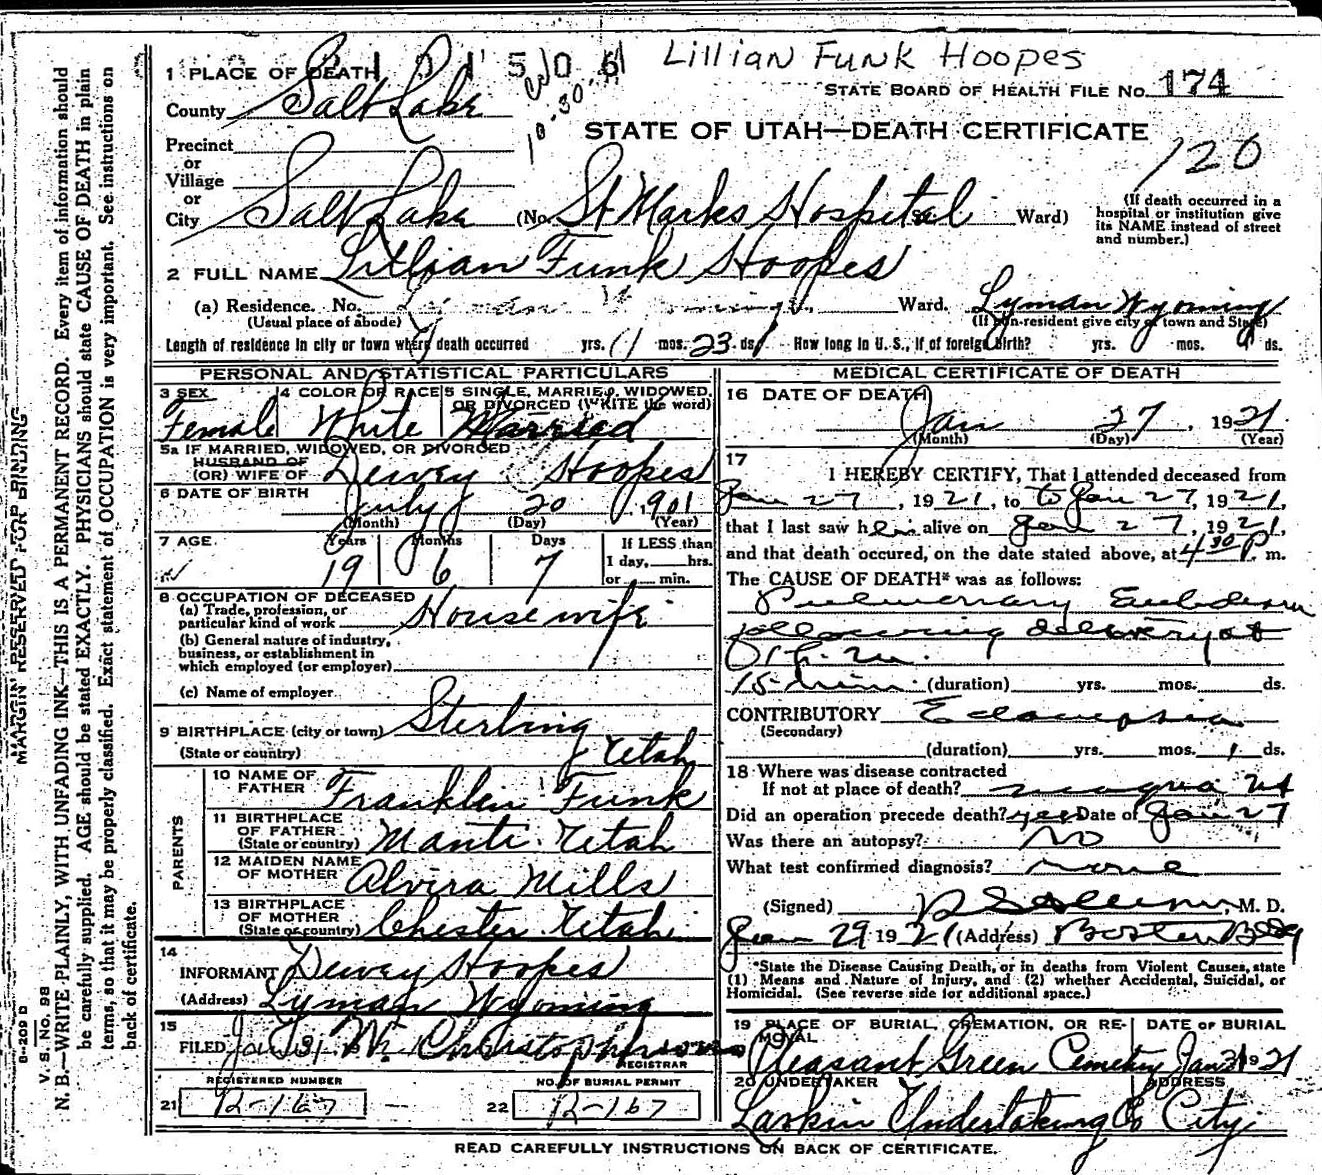 Lillian Funk Hoopes
1 PLACE OF DEATH
STATE BOARD OF HEALTH FILE NO. 174
County Salt Lake
10-30
STATE OF UTAH—DEATH CERTIFICATE
120
Precinct
or
Village
or
City Salt Lake (No. St Marks Hospital St. Ward)
(If death occurred in a hospital or institution give its NAME instead of street and number.)
2 FULL NAME Lillian Funk Hoopes
(a) Residence. No. Ward. Lyman Wyoming
(Usual place of abode) (If non-resident give city or town and State)
Length of residence in city or town where death occurred yrs. mos. 23 ds. How long in U.S., if of foreign birth? yrs. mos. ds.
PERSONAL AND STATISTICAL PARTICULARS
3 SEX 4 COLOR OR RACE 5 SINGLE, MARRIED, WIDOWED, OR DIVORCED (WRITE the word)
Female White Married
5a IF MARRIED, WIDOWED, OR DIVORCED
HUSBAND OF
(OR) WIFE OF Dewey Hoopes
6 DATE OF BIRTH July 20 1901
(Month) (Day) (Year)
7 AGE Years Months Days If LESS than
19 6 7 1 day, hrs.
or min.
8 OCCUPATION OF DECEASED
(a) Trade, profession, or
particular kind of work Housewife
(b) General nature of industry,
business, or establishment in
which employed (or employer)
(c) Name of employer
9 BIRTHPLACE (city or town) Sterling
(State or country) Utah
PARENTS
10 NAME OF
FATHER Franklen Funk
11 BIRTHPLACE
OF FATHER
(State or country) Manti Utah
12 MAIDEN NAME
OF MOTHER Alvira Mills
13 BIRTHPLACE
OF MOTHER
(State or country) Chester Utah
14
INFORMANT Dewey Hoopes
(Address) Lyman Wyoming
15
FILED Jan 31 M. Christopherson
REGISTRAR
REGISTERED NUMBER NO. OF BURIAL PERMIT
21 12-167 22 12-167
MEDICAL CERTIFICATE OF DEATH
16 DATE OF DEATH
Jan 27, 1921
(Month) (Day) (Year)
17
I HEREBY CERTIFY, That I attended deceased from
Jan 27, 1921, to Jan 27, 1921,
that I last saw her alive on Jan 27, 1921,
and that death occured, on the date stated above, at 4 30 P. m.
The CAUSE OF DEATH* was as follows:
Pulmonary Embolism
following delivery at
15 min. (duration) yrs. mos. ds.
CONTRIBUTORY Eclampsia
(Secondary)
(duration) yrs. mos. 1 ds.
18 Where was disease contracted
If not at place of death? Magna Ut
Did an operation precede death? yes Date of Jan 27
Was there an autopsy? No
What test confirmed diagnosis? none
(Signed) , M. D.
Jan 29 1921 (Address) Boston Bldg
*State the Disease Causing Death, or in deaths from Violent Causes, state
(1) Means and Nature of Injury, and (2) whether Accidental, Suicidal, or
Homicidal. (See reverse side for additional space.)
19 PLACE OF BURIAL, CREMATION, OR REMOVAL DATE OF BURIAL
Pleasant Green Cemetery Jan 31 1921
20 UNDERTAKER ADDRESS
Larkin Undertaking Co City
READ CAREFULLY INSTRUCTIONS ON BACK OF CERTIFICATE.
MARGIN RESERVED FOR BINDING
8-209 D
V. S. NO. 98
N. B.—WRITE PLAINLY, WITH UNFADING INK—THIS IS A PERMANENT RECORD. Every item of information should
be carefully supplied. AGE should be stated EXACTLY. PHYSICIANS should state CAUSE OF DEATH in plain
terms, so that it may be properly classified. Exact statement of OCCUPATION is very important. See instructions on
back of certificate.